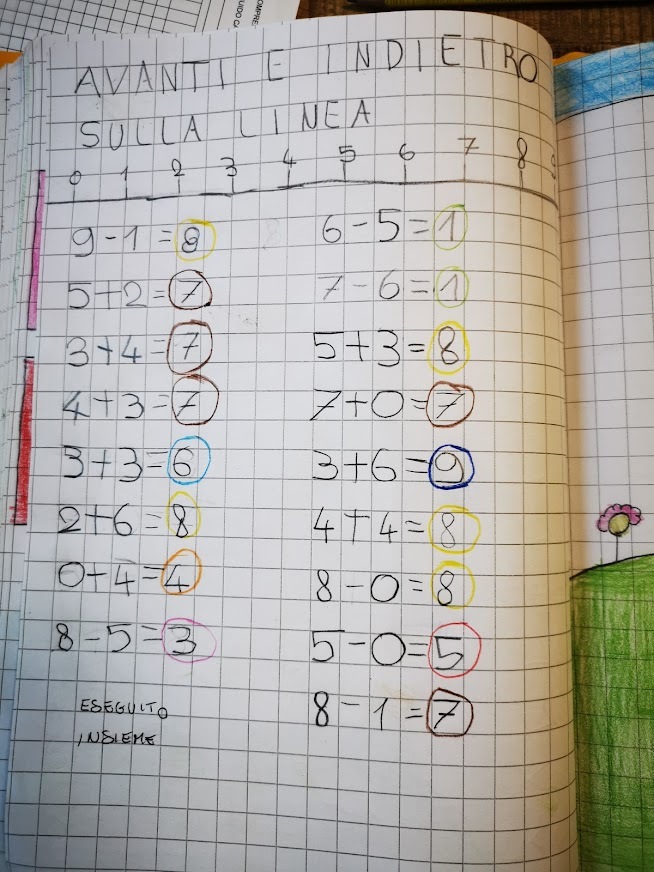 AVANTI E INDIETRO
SULLA LINEA
0 1 2 3 4 5 6 7 8 9
9-1=8
5+2=7
3+4=7
4+3=7
3+3=6
2+6=8
0+4=4
8-5=3
ESEGUITO
INSIEME
6-5=1
7-6=1
5+3=8
7+0=7
3+6=9
4+4=8
8-0=8
5-0=5
8-1=7